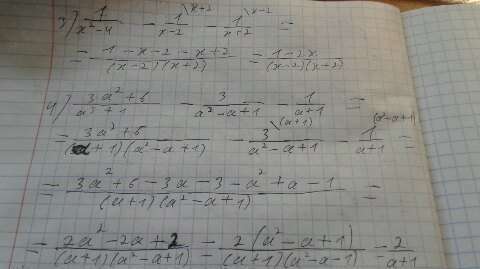 3) 1/(x²-4) - 1/(x-2) \x+2 - 1/(x+2) \x-2 =
= (1-x-2-x+2)/((x-2)(x+2)) = (1-2x)/((x-2)(x+2))
4) (3a²+6)/(a³+1) - 3/(a²-a+1) - 1/(a+1) =
= (3a²+6)/((a+1)(a²-a+1)) - 3/(a²-a+1) \(a+1) - 1/(a+1) (a²-a+1) =
= (3a²+6-3a-3-a²+a-1)/((a+1)(a²-a+1)) =
= (2a²-2a+2)/((a+1)(a²-a+1)) = 2(a²-a+1)/((a+1)(a²-a-1)) = 2/(a+1)